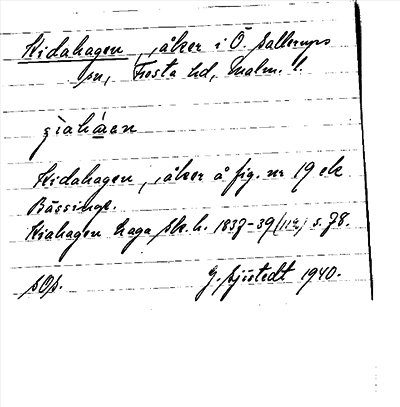 Kidahagen, åker i Ö. Sallerups
sn, Frosta hd, Malm. l.
ʒiahàen
Kidahagen, åker å fig. nr 19 ek
Bässinge.
Kiahagen haga sk.h. 1837-39 (112) s. 78.
sOs. G. Sjöstedt 1940.